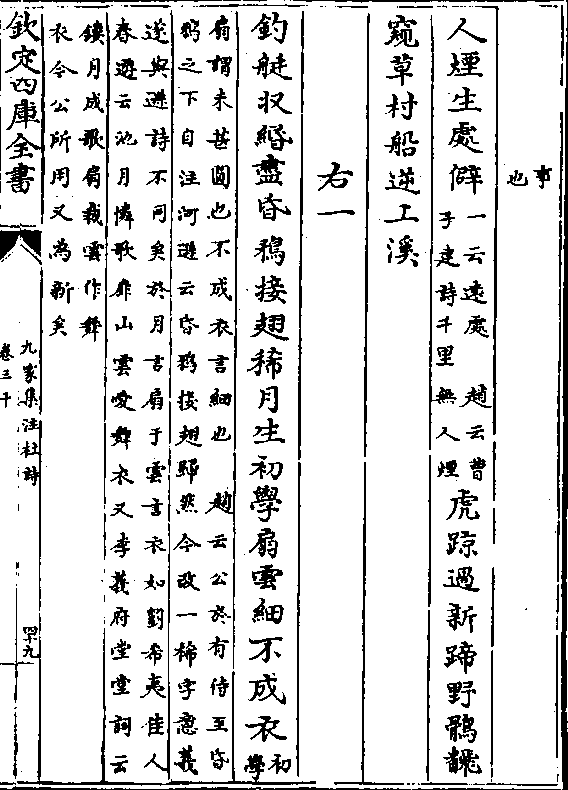 事
也
人煙生處僻
一云遠處 趙云曹
子建詩千里 無人煙
虎蹤過新蹄野鶻翻
窺草村船逆上溪
右一
釣艇收緡盡昏鴉接翅稀月生初學扇雲細不成衣
初
學
扇謂未甚圓也不成衣言細也 趙云公於有侍至昏
鴉之下自注河遜云昏鴉接翅歸然今改一稀字意義
遂與遜詩不同矣於月言扇于雲言衣如劉希夷佳人
春遊云池月憐歌扇山雲愛舞衣又李義府堂堂詞云
鏤月成歌扇裁雲作舞
衣今公所用又為新矣
欽定四庫全書
九家集注杜詩
卷三十
四十九